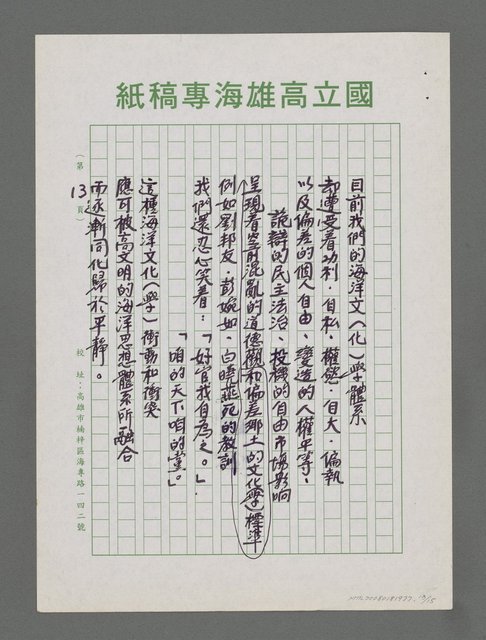 國立高雄海專稿紙
目前我們的海洋文(化)學體系
却遭受着功利．自私．權慾．自大．偏執
以及偏差的個人自由、變造的人權平等、
詭辯的民主法治、投機的自由市場影响
呈現着空前混亂的道德觀和偏差鄉土的文化(學)標準
例如劉邦友．彭婉如．白曉燕死的教訓
我們還忍心笑着：「好官我自為之。」
「咱的天下咱的黨。」
這種海洋文化(學)衝動和衝突
應可被高文明的海洋思想體系所融合
而逐漸同化歸於平靜。
(第13頁)
校址：高雄市楠梓區海專路一四二號